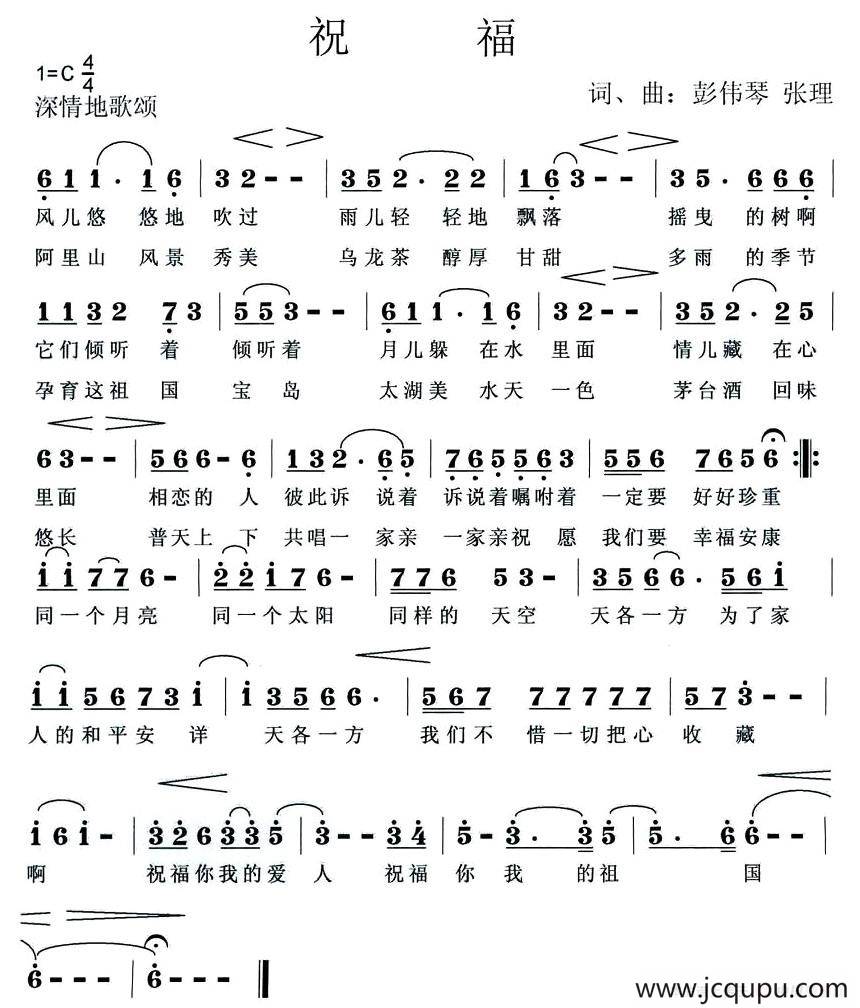 祝 福
1=C 4/4
深情地歌颂
词、曲：彭伟琴 张理
6 1 1 · 1 6 | 3 2 - - | 3 5 2 · 2 2 | 1 6 3 - - | 3 5 · 6 6 6 |
风儿悠 悠地 吹过 雨儿轻 轻地 飘落 摇曳 的树啊
阿里山 风景 秀美 乌龙茶 醇厚 甘甜 多雨 的季节
1 1 3 2 7 3 | 5 5 3 - - | 6 1 1 · 1 6 | 3 2 - - | 3 5 2 · 2 5 |
它们倾听 着 倾听着 月儿躲 在水 里面 情儿藏 在心
孕育这祖 国 宝 岛 太湖美 水天 一色 茅台酒 回味
6 3 - - | 5 6 6 - 6 | 1 3 2 · 6 5 | 7 6 5 5 6 3 | 5 5 6 7 6 5 6 :||
里面 相恋的 人 彼此诉 说着 诉说着嘱咐着 一定要 好好珍重
悠长 普天上 下 共唱一 家亲 一家亲祝 愿 我们要 幸福安康
i i 7 7 6 - | 2 2 i 7 6 - | 7 7 6 5 3 | 3 5 6 6 · 5 6 i |
同一个月亮 同一个太阳 同样的 天空 天各一方 为了家
i i 5 6 7 3 i | i 3 5 6 6 · | 5 6 7 7 7 7 7 7 | 5 7 3 - - |
人的和平安 详 天各一方 我们不 惜一切把心 收藏
i 6 i - | 3 2 6 3 3 5 | 3 - - 3 4 | 5 - 3 · 3 5 | 5 · 6 6 - - |
啊 祝福你我的爱 人 祝福 你 我 的祖 国
6 - - - | 6 - - - ||
www.jcqupu.com